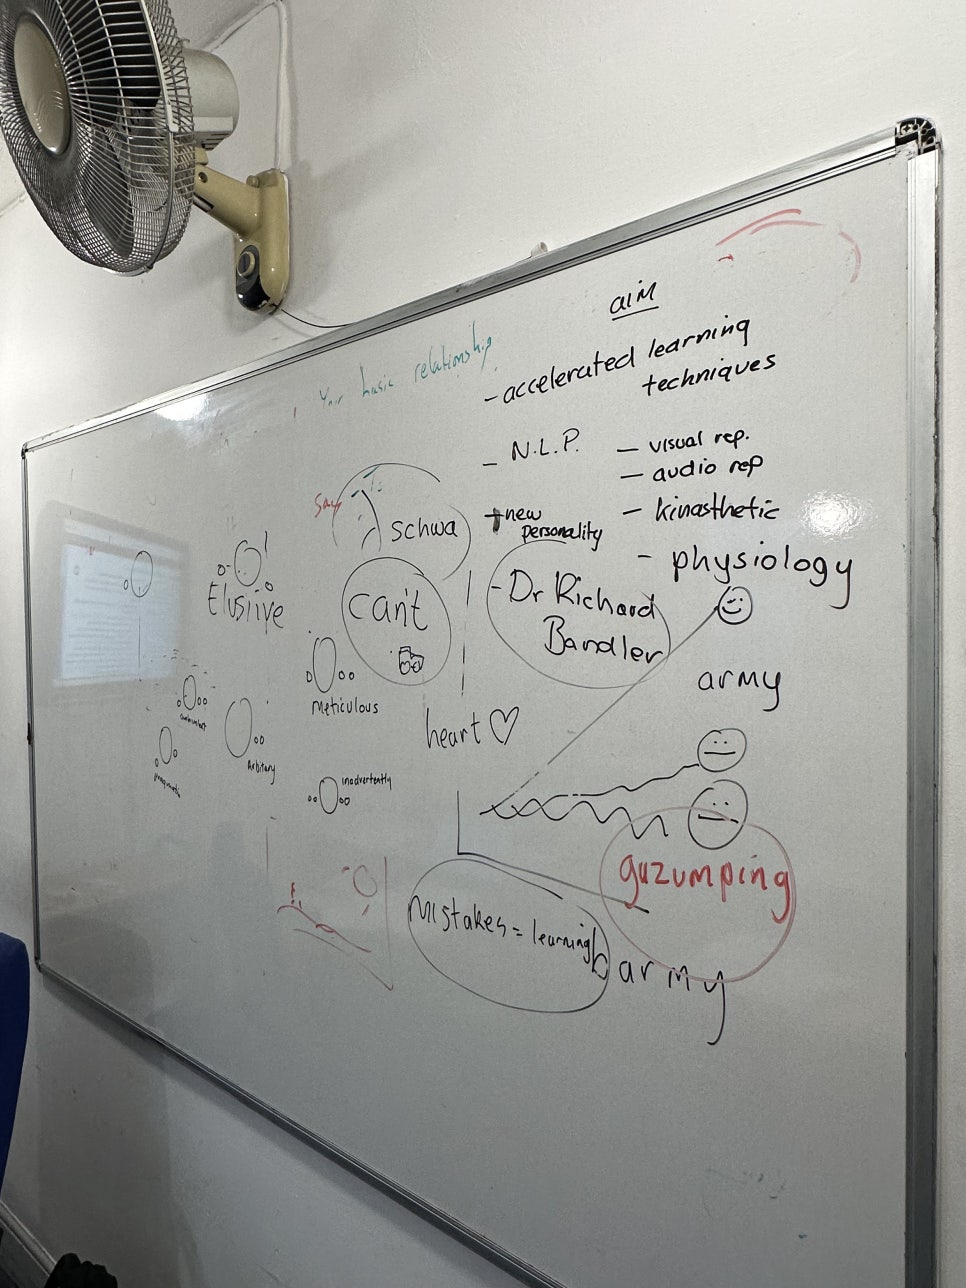 aim
- accelerated learning
techniques
basic relationship
- N.L.P.
- visual rep.
- audio rep
- kinasthetic
- physiology
+ new
personality
- Dr Richard
Bandler
Say
schwa
can't
Elusiive
Meticulous
Arbitary
inadvertently
heart
army
guzumping
Mistakes = learning
barmy